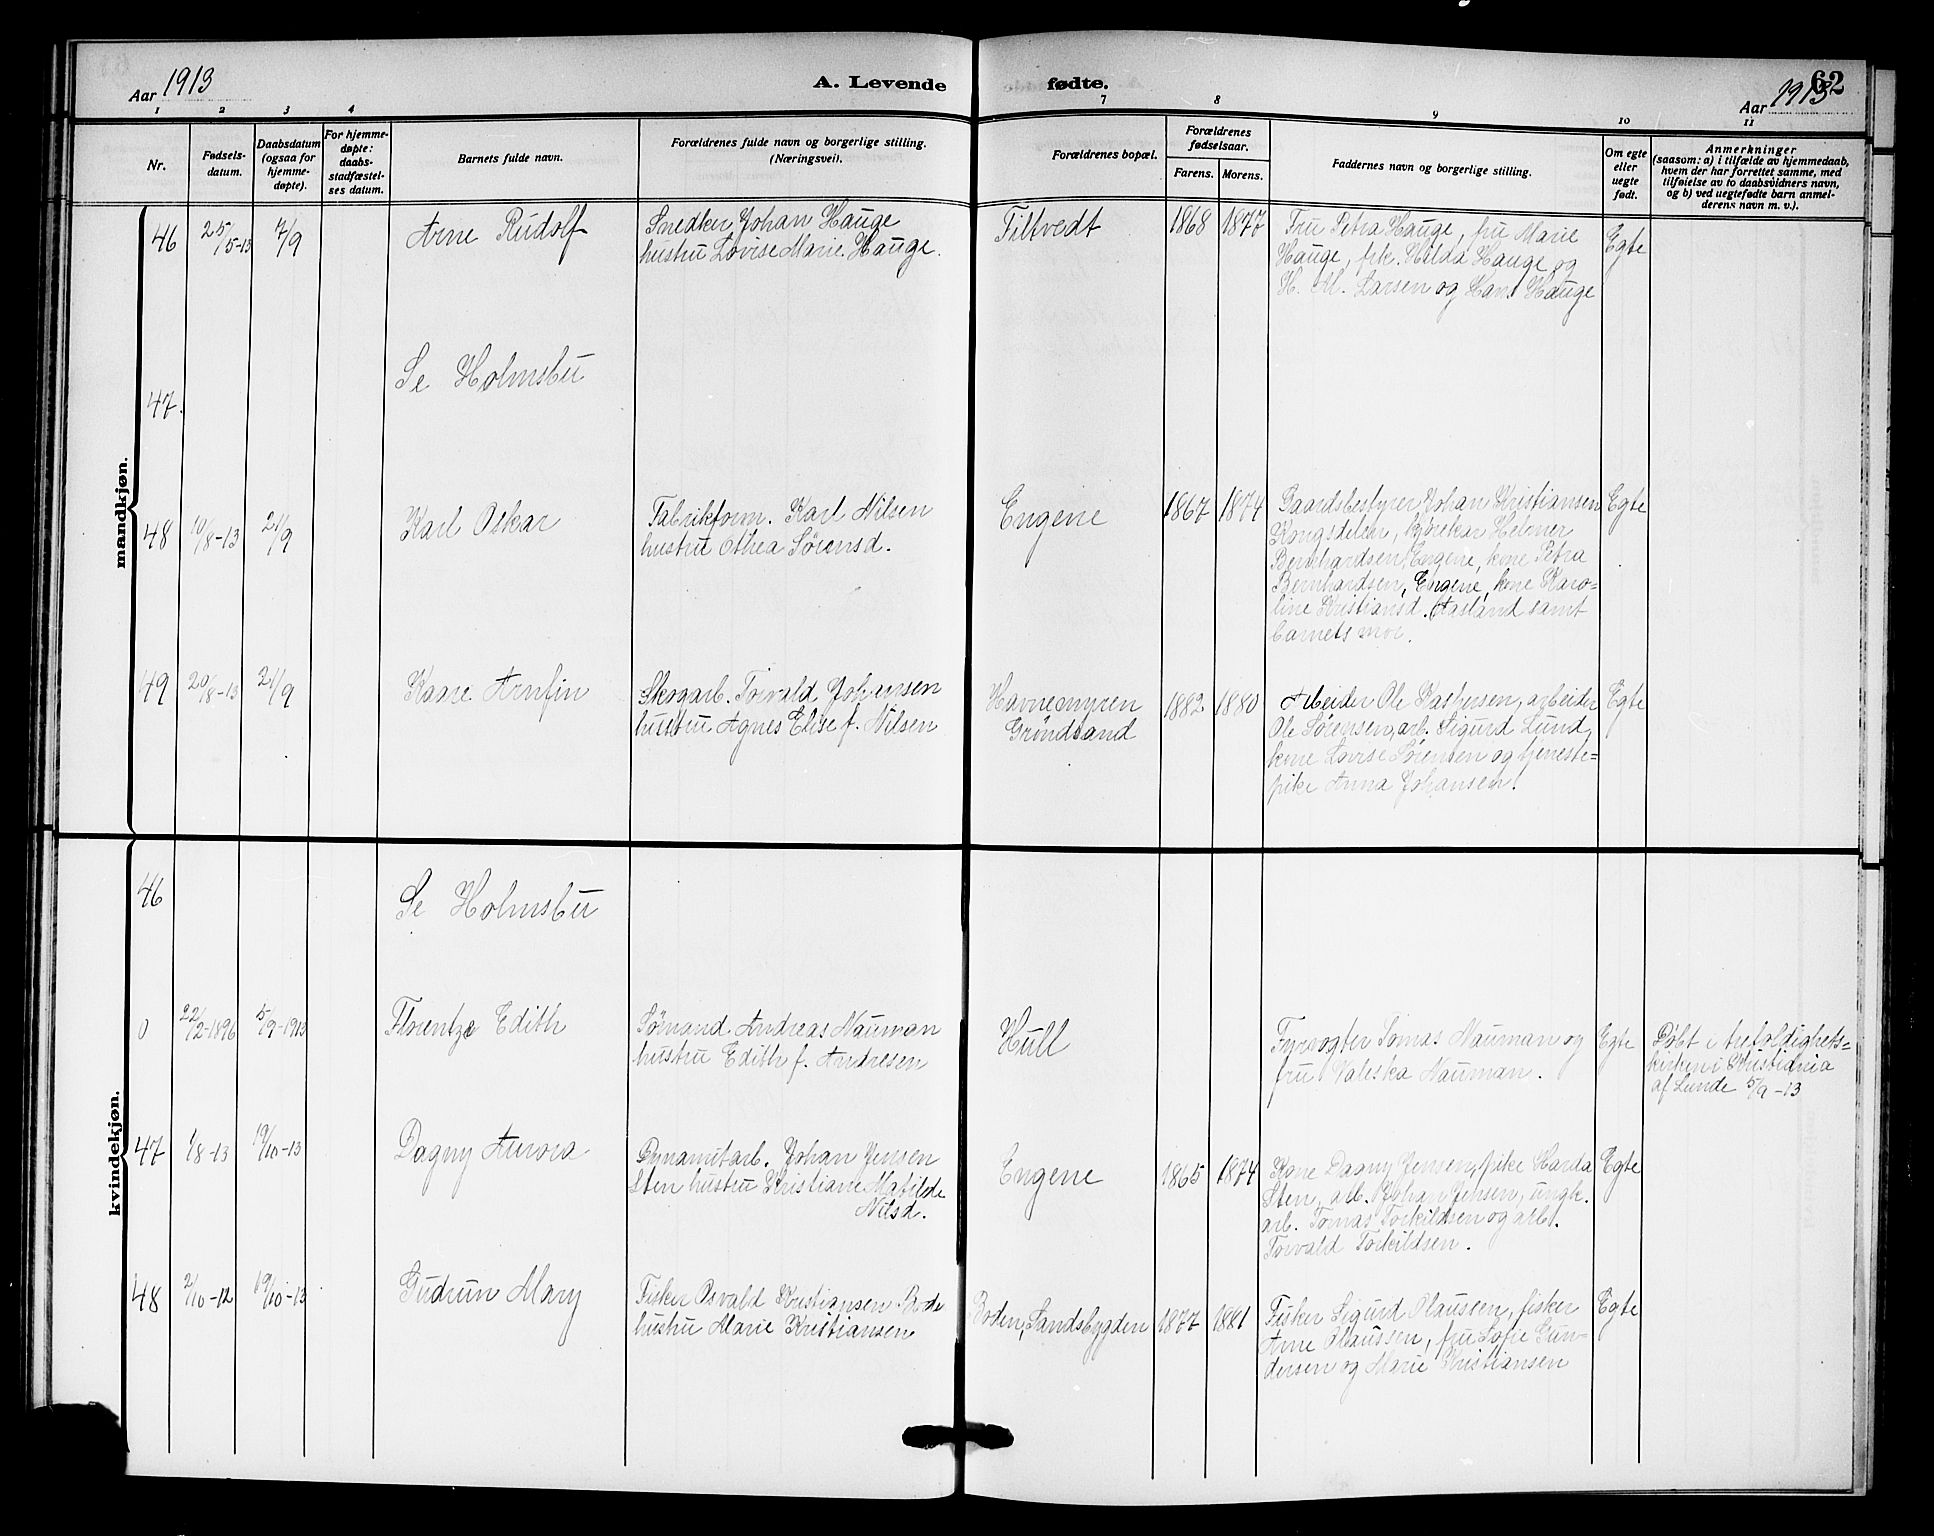 Aar 1913
A. Levende fødte.
Aar 1913
62
1 2 3 4 7 8 9 10 11
Nr.
Fødsels-
datum.
Daabsdatum
(ogsaa for
hjemme-
døpte).
For hjemme-
døpte:
daabs-
stadfæstel-
ses datum.
Barnets fulde navn.
Forældrenes fulde navn og borgerlige stilling.
(Næringsvei).
Forældrenes bopæl.
Forældrenes
fødselsaar.
Farens. Morens.
Faddernes navn og borgerlige stilling.
Om egte
eller
uegte
født.
Anmerkninger
(saasom: a) i tilfælde av hjemmedaab,
hvem der har forrettet samme, med
tilføielse av to daabsvidners navn,
og b) ved uegtefødte barn anmel-
derens navn m. v.).
mandkjøn.
46
25/5-13
7/9
Arne Rudolf
Snedker Johan Hauge
hustru Lovise Marie Hauge.
Filtvedt
1868
1877
Fru Petra Hauge, fru Marie
Hauge, frk. Hilda Hauge og
H. M. Larsen og Hans Hauge
Egte
47.
Se Holmsbu
48
10/8-13
21/9
Karl Oskar
Fabrikform. Karl Nilsen
hustru Othea Sørensd.
Engene
1867
1874
Gaardsbestyrer Johan Kristiansen
Kongsdelen, kjørekar Helmer
Bernhardsen, Engene, kone Petra
Bernhardsen, Engene, kone Karo-
line Kristiansd. Aasland samt
barnets mor.
Egte
49
20/8-13
21/9
Kaare Arnfin
Skogarb. Torvald Johansen
hustru Agnes Elise f. Nilsen
Havnemyren
Grøndsand
1882
1880
Arbeider Ole Kastersen, arbeider
Ole Sørensen, arb. Sigurd Lund,
kone Lovise Sørensen og tjeneste-
pike Anna Johansen.
Egte
kvindekjøn.
46
Se Holmsbu
0
22/2-1896
5/9-1913
Florentze Edith
Sømand Andreas Nauman
hustru Edith f. Andresen
Hull
Fyrvogter Tomas Nauman og
fru Valeska Nauman.
Egte
Døbt i trefoldighets-
kirken i Kristiania
af Lunde 5/9-13
47
1/8-13
19/10-13
Dagny Aurora
Dynamitarb. Johan Jensen
Sten hustru Kristiane Matilde
Nilsd.
Engene
1865
1874
Kone Dagny Jensen, pike Harda
Sten, arb. Johan Jensen, ungk.
arb. Tomas Torkildsen og arb.
Torvald Torkildsen.
Egte
48
2/10-12
19/10-13
Gudrun Mary
Fisker Osvald Kristiansen Bode
hustru Marie Kristiansen
Boden, Sandsbygden
1877
1881
Fisker Sigurd Olaussen, fisker
Arne Olaussen, fru Sofie Gun-
dersen og Marie Kristiansen
Egte